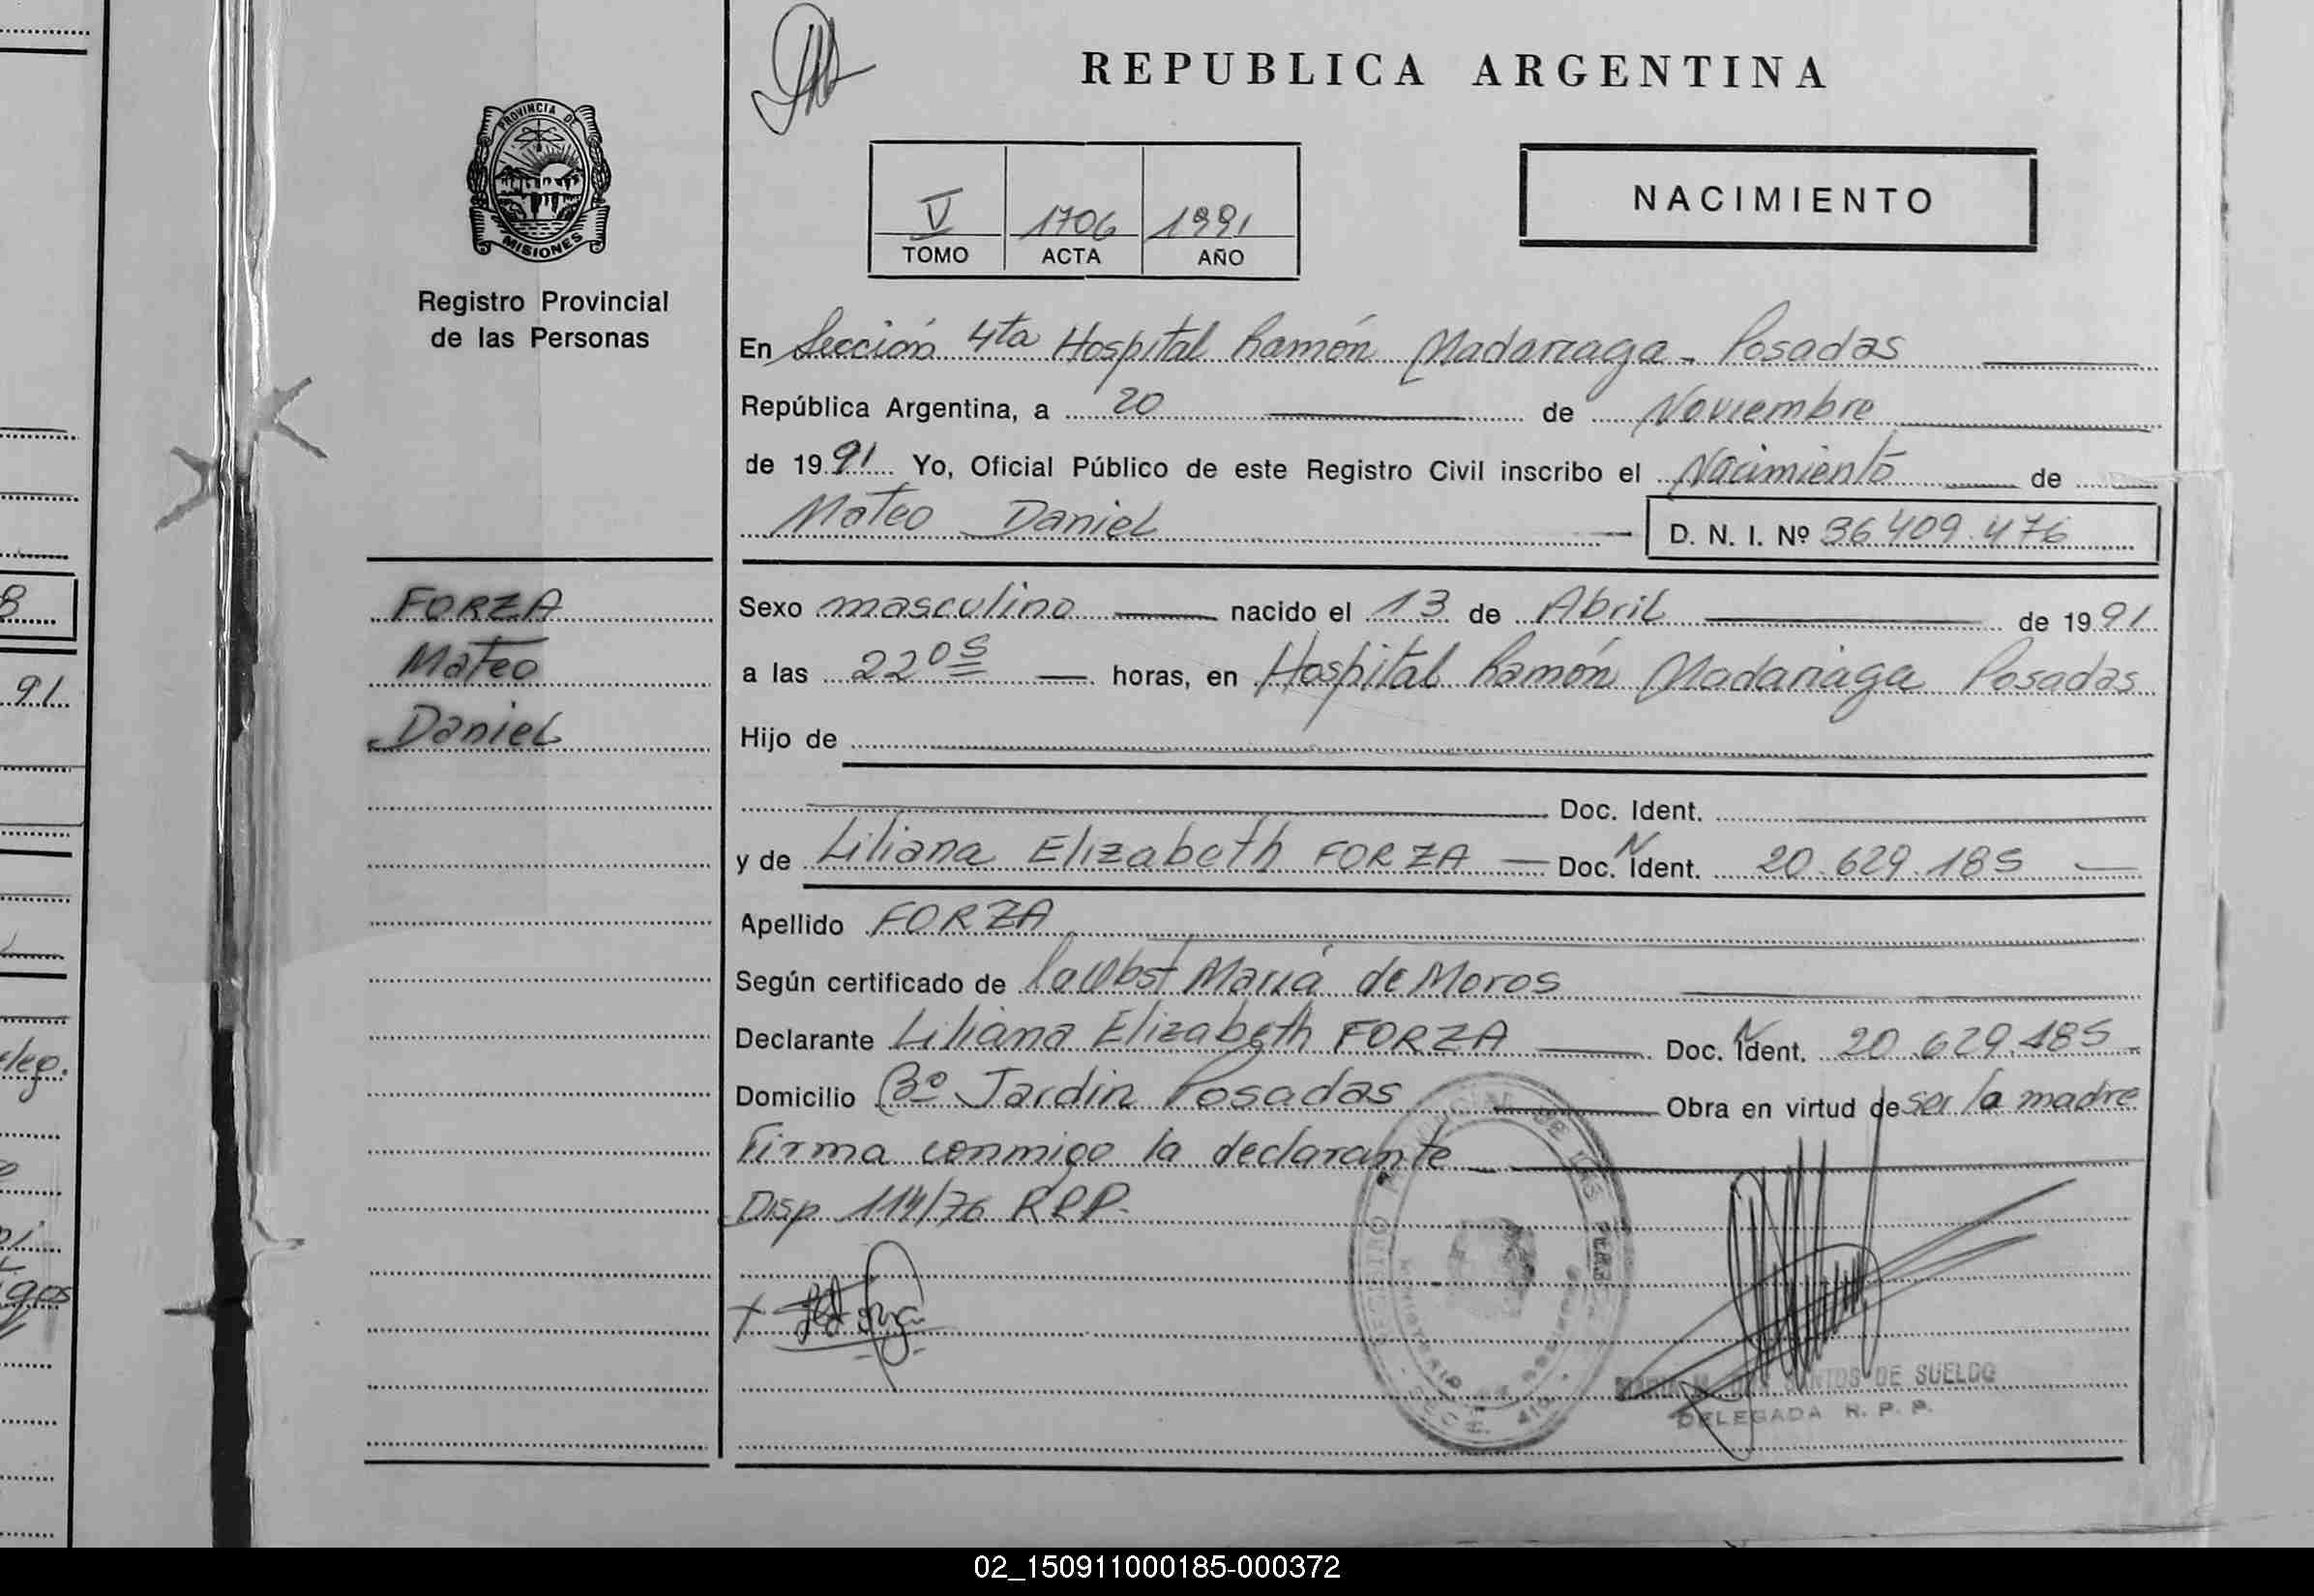 REPUBLICA ARGENTINA
PROVINCIA DE
MISIONES
Registro Provincial
de las Personas
V 1706 1991
TOMO ACTA AÑO
NACIMIENTO
En Sección 4ta Hospital Ramón Madariaga - Posadas
República Argentina, a 20 de Noviembre
de 1991 Yo, Oficial Público de este Registro Civil inscribo el Nacimiento de
Mateo Daniel D. N. I. Nº 36.409.476
FORZA
Mateo
Daniel
Sexo masculino nacido el 13 de Abril de 1991
a las 22 05 horas, en Hospital Ramón Madariaga Posadas
Hijo de
Doc. Ident.
y de Liliana Elizabeth FORZA Doc. N Ident. 20.629.185
Apellido FORZA
Según certificado de la Obst María de Moros
Declarante Liliana Elizabeth FORZA Doc. N Ident. 20.629.185
Domicilio Bº Jardin Posadas Obra en virtud de ser la madre
Firma conmigo la declarante
Disp 114/76 R.P.P.
DE SUELDO
DELEGADA R. P. P.
8
91
gos
02_150911000185-000372